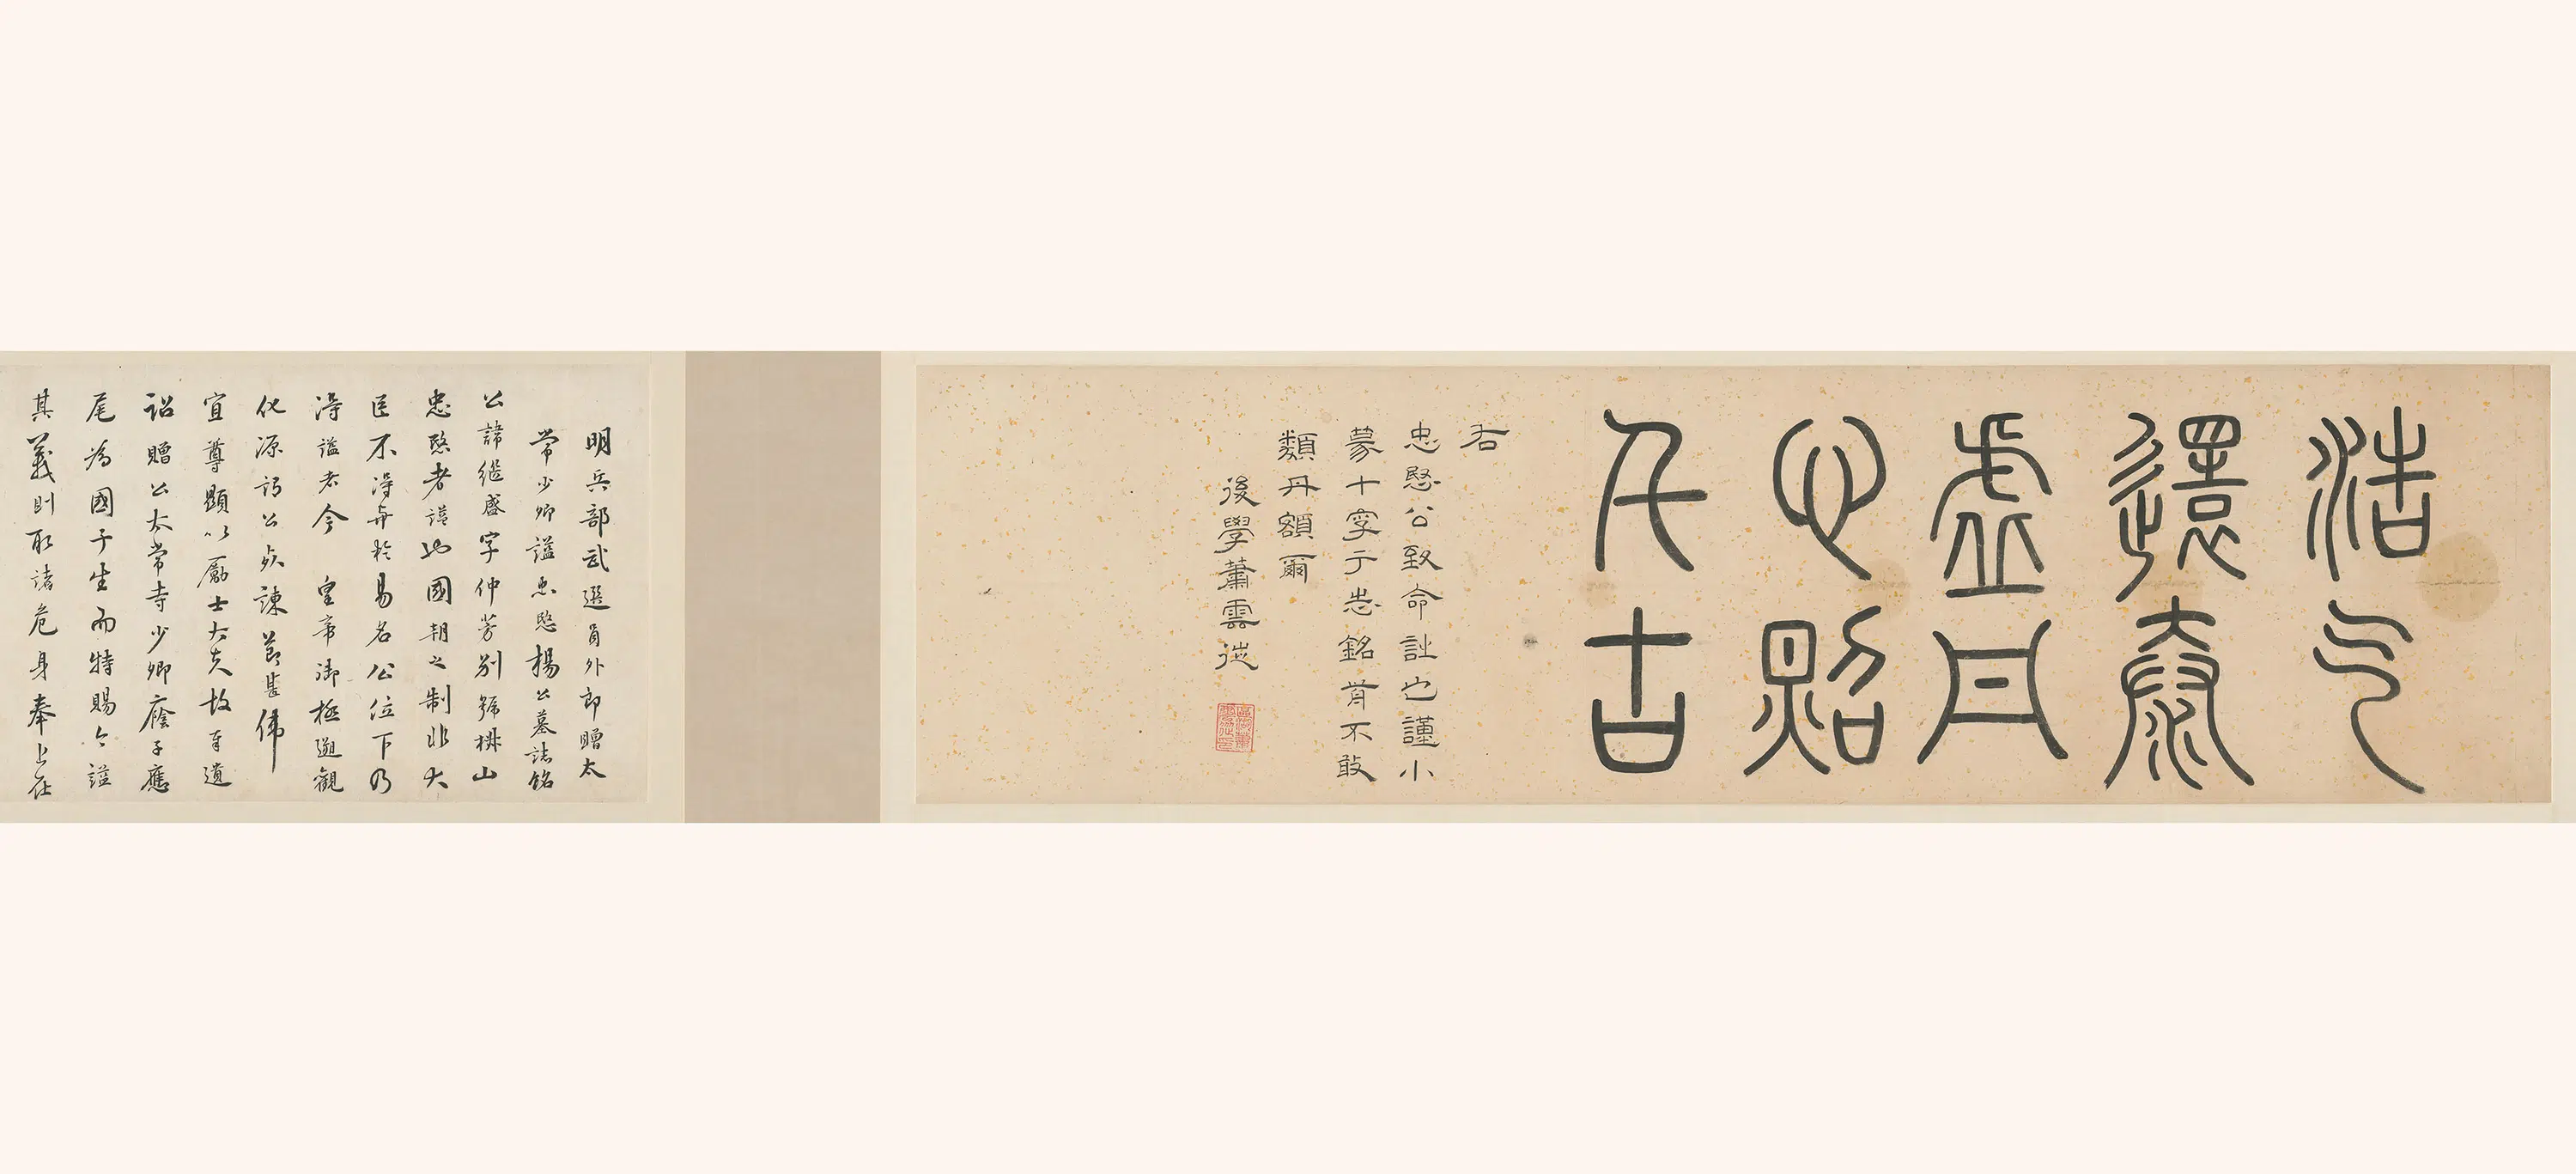 浩气
還泰
虛丹
心照
千古
右
忠愍公致命詩也謹小
篆十字于志銘首不敢
類丹額爾
後學蕭雲從
明兵部武選員外郎贈太
常少卿謚忠愍楊公墓誌銘
公諱繼盛字仲芳別號椒山
忠愍者謚也國朝之制非大
臣不得與於易名公位下乃
得謚者今 皇帝御極遡觀
化源謂公死諫節甚偉
宜尊顯以勵士大夫故有遺
詔贈公太常寺少卿廕子應
尾為國子生而特賜今謚
其義則取諸危身奉上在